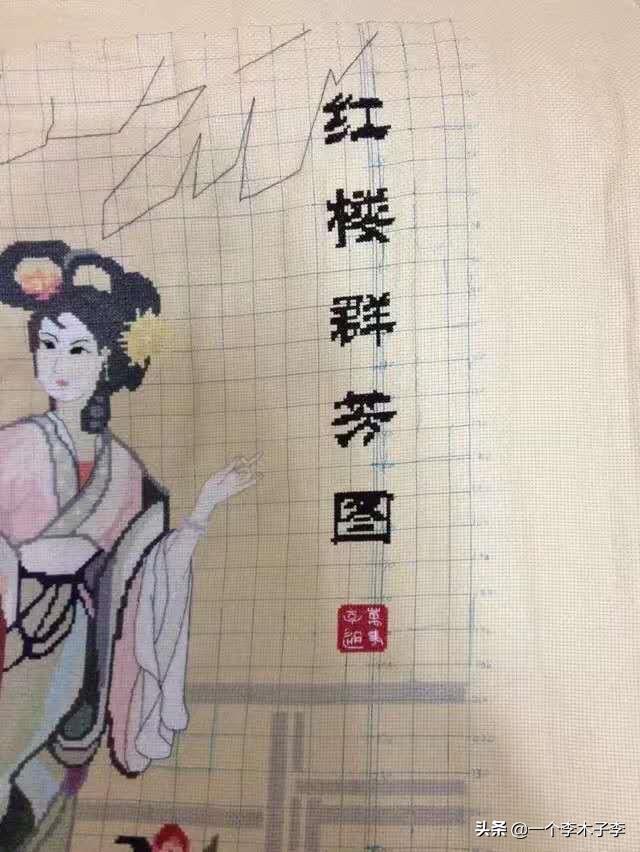 红楼群芳图
头条 @一个李木子李